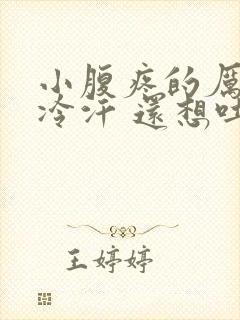 小腹疼的厲
冷汗 還想吐
王婷婷